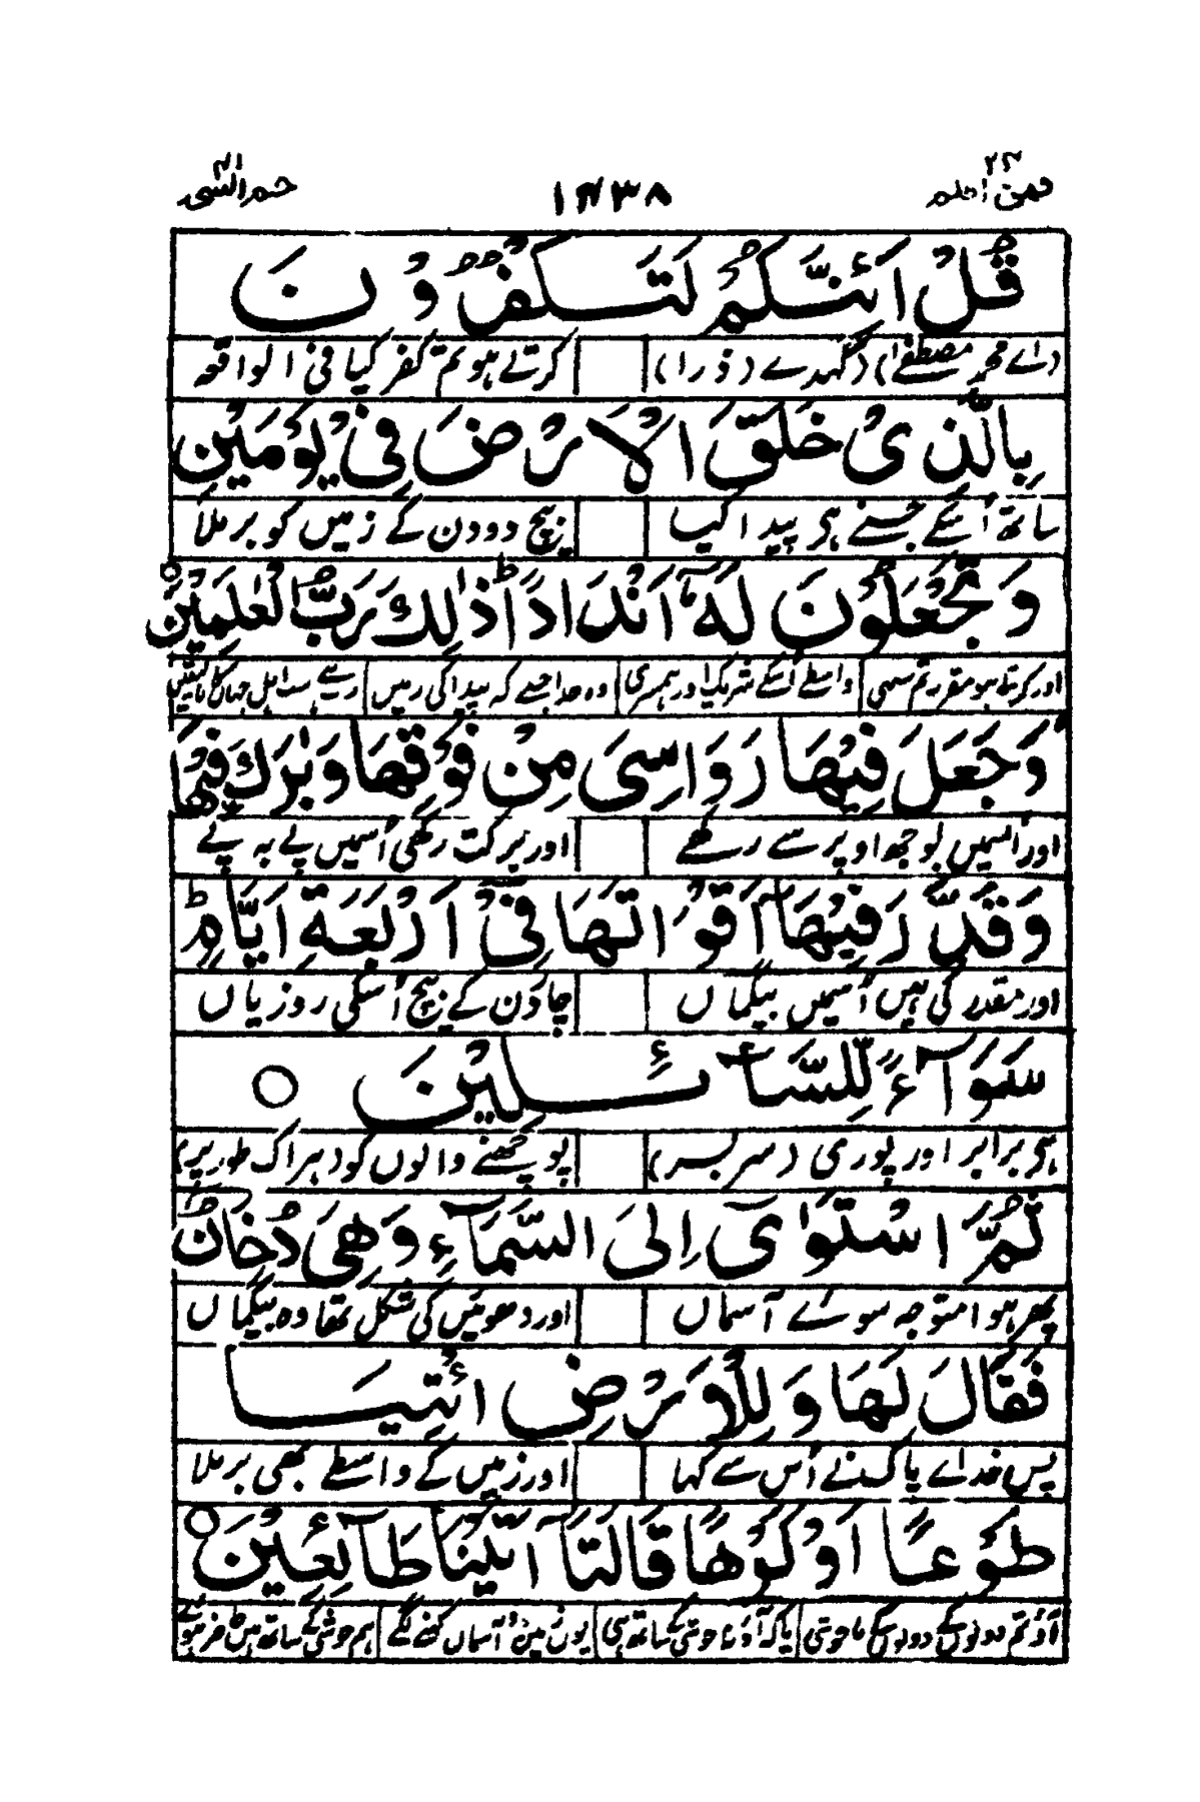 فمن اظلم ۲۴ ۱۴۳۸ حم السجدۃ ۴۱
قُلْ اَئِنَّكُمْ لَتَكْفُرُوْنَ
(اے محمد مصطفےٰ) کہدے (ذرا) کرتے ہو تم کفر کیا فی الواقعہ
بِالَّذِیْ خَلَقَ الْاَرْضَ فِیْ یَوْمَیْنِ
ساتھ اُسکے جسنے ہی پیدا کیا بیچ دو دن کے زمیں کو برملا
وَتَجْعَلُوْنَ لَهٗۤ اَنْدَادًا ؕ ذٰلِكَ رَبُّ الْعٰلَمِیْنَ ○
اور کرتے ہو مقرر تم سبھی واسطے اُسکے شریک اور ہمسری وہ خدا جسے کہ پیدا کی زمیں رب ہے سب اہل جہاں کا
وَجَعَلَ فِیْهَا رَوَاسِیَ مِنْ فَوْقِهَا وَبٰرَكَ فِیْهَا
اور اُسمیں بوجھ اوپر سے رکھے اور برکت رکھی اُسمیں پے بہ پے
وَقَدَّرَ فِیْهَاۤ اَقْوَاتَهَا فِیْۤ اَرْبَعَةِ اَیَّامٍ ؕ
اور مقدر کی ہیں اُسمیں بیگماں چار دن کے بیچ اُسکی روزیاں
سَوَآءً لِّلسَّآئِلِیْنَ ○
ہی برابر اور پوری (سر بسر) پوچھنے والوں کو ہر اک طور پر
ثُمَّ اسْتَوٰۤی اِلَی السَّمَآءِ وَهِیَ دُخَانٌ
پھر ہوا متوجہ سوئے آسماں اور دھوئیں کی شکل تھا وہ بیگماں
فَقَالَ لَهَا وَلِلْاَرْضِ ائْتِیَا
پس خدائے پاک نے اُس سے کہا اور زمیں کے واسطے بھی برملا
طَوْعًا اَوْ كَرْهًا قَالَتَاۤ اَتَیْنَا طَآئِعِیْنَ ○
آؤ تم دونوں کے دونوں باخوشی یا کہ آؤ نا خوشی کے ساتھ ہی یوں زمین و آسماں کہنے لگے ہم خوشی کے ساتھ ہیں حاضر ہوئے